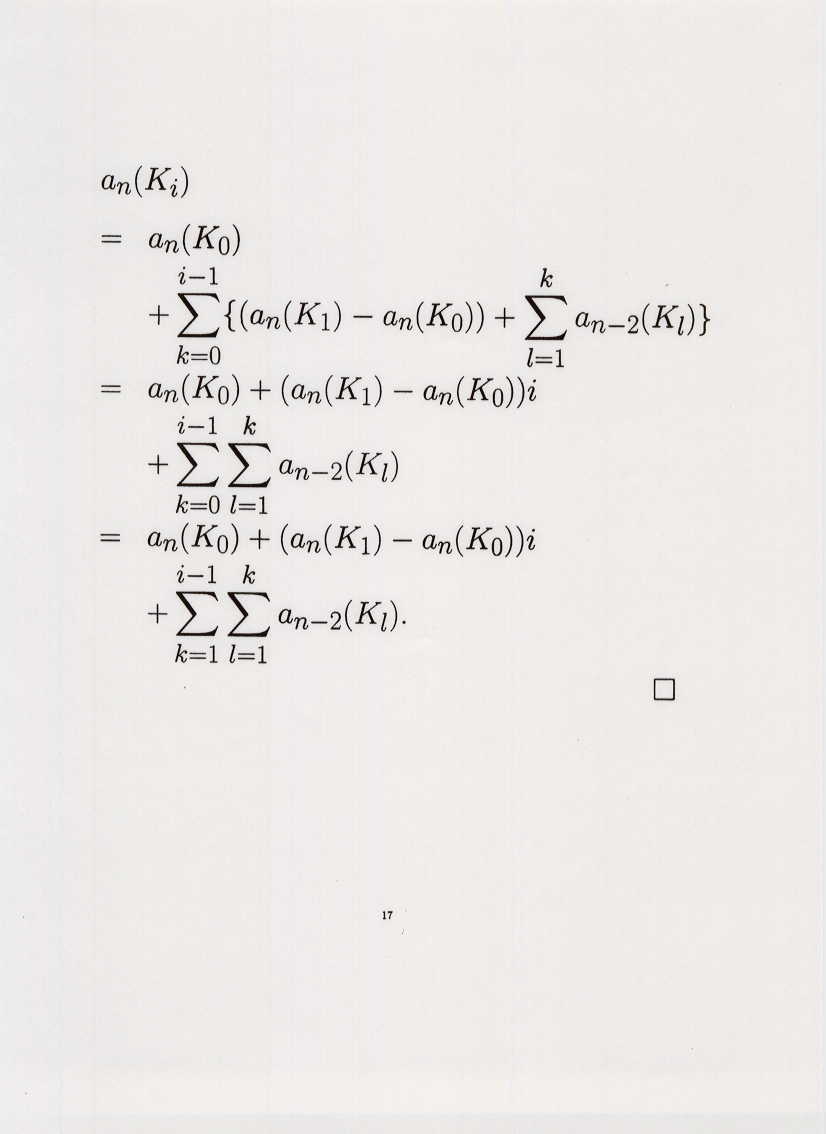 a_n(K_i)
= a_n(K_0)
+ \sum_{k=0}^{i-1} \{(a_n(K_1) - a_n(K_0)) + \sum_{l=1}^{k} a_{n-2}(K_l)\}
= a_n(K_0) + (a_n(K_1) - a_n(K_0))i
+ \sum_{k=0}^{i-1} \sum_{l=1}^{k} a_{n-2}(K_l)
= a_n(K_0) + (a_n(K_1) - a_n(K_0))i
+ \sum_{k=1}^{i-1} \sum_{l=1}^{k} a_{n-2}(K_l).
□
17